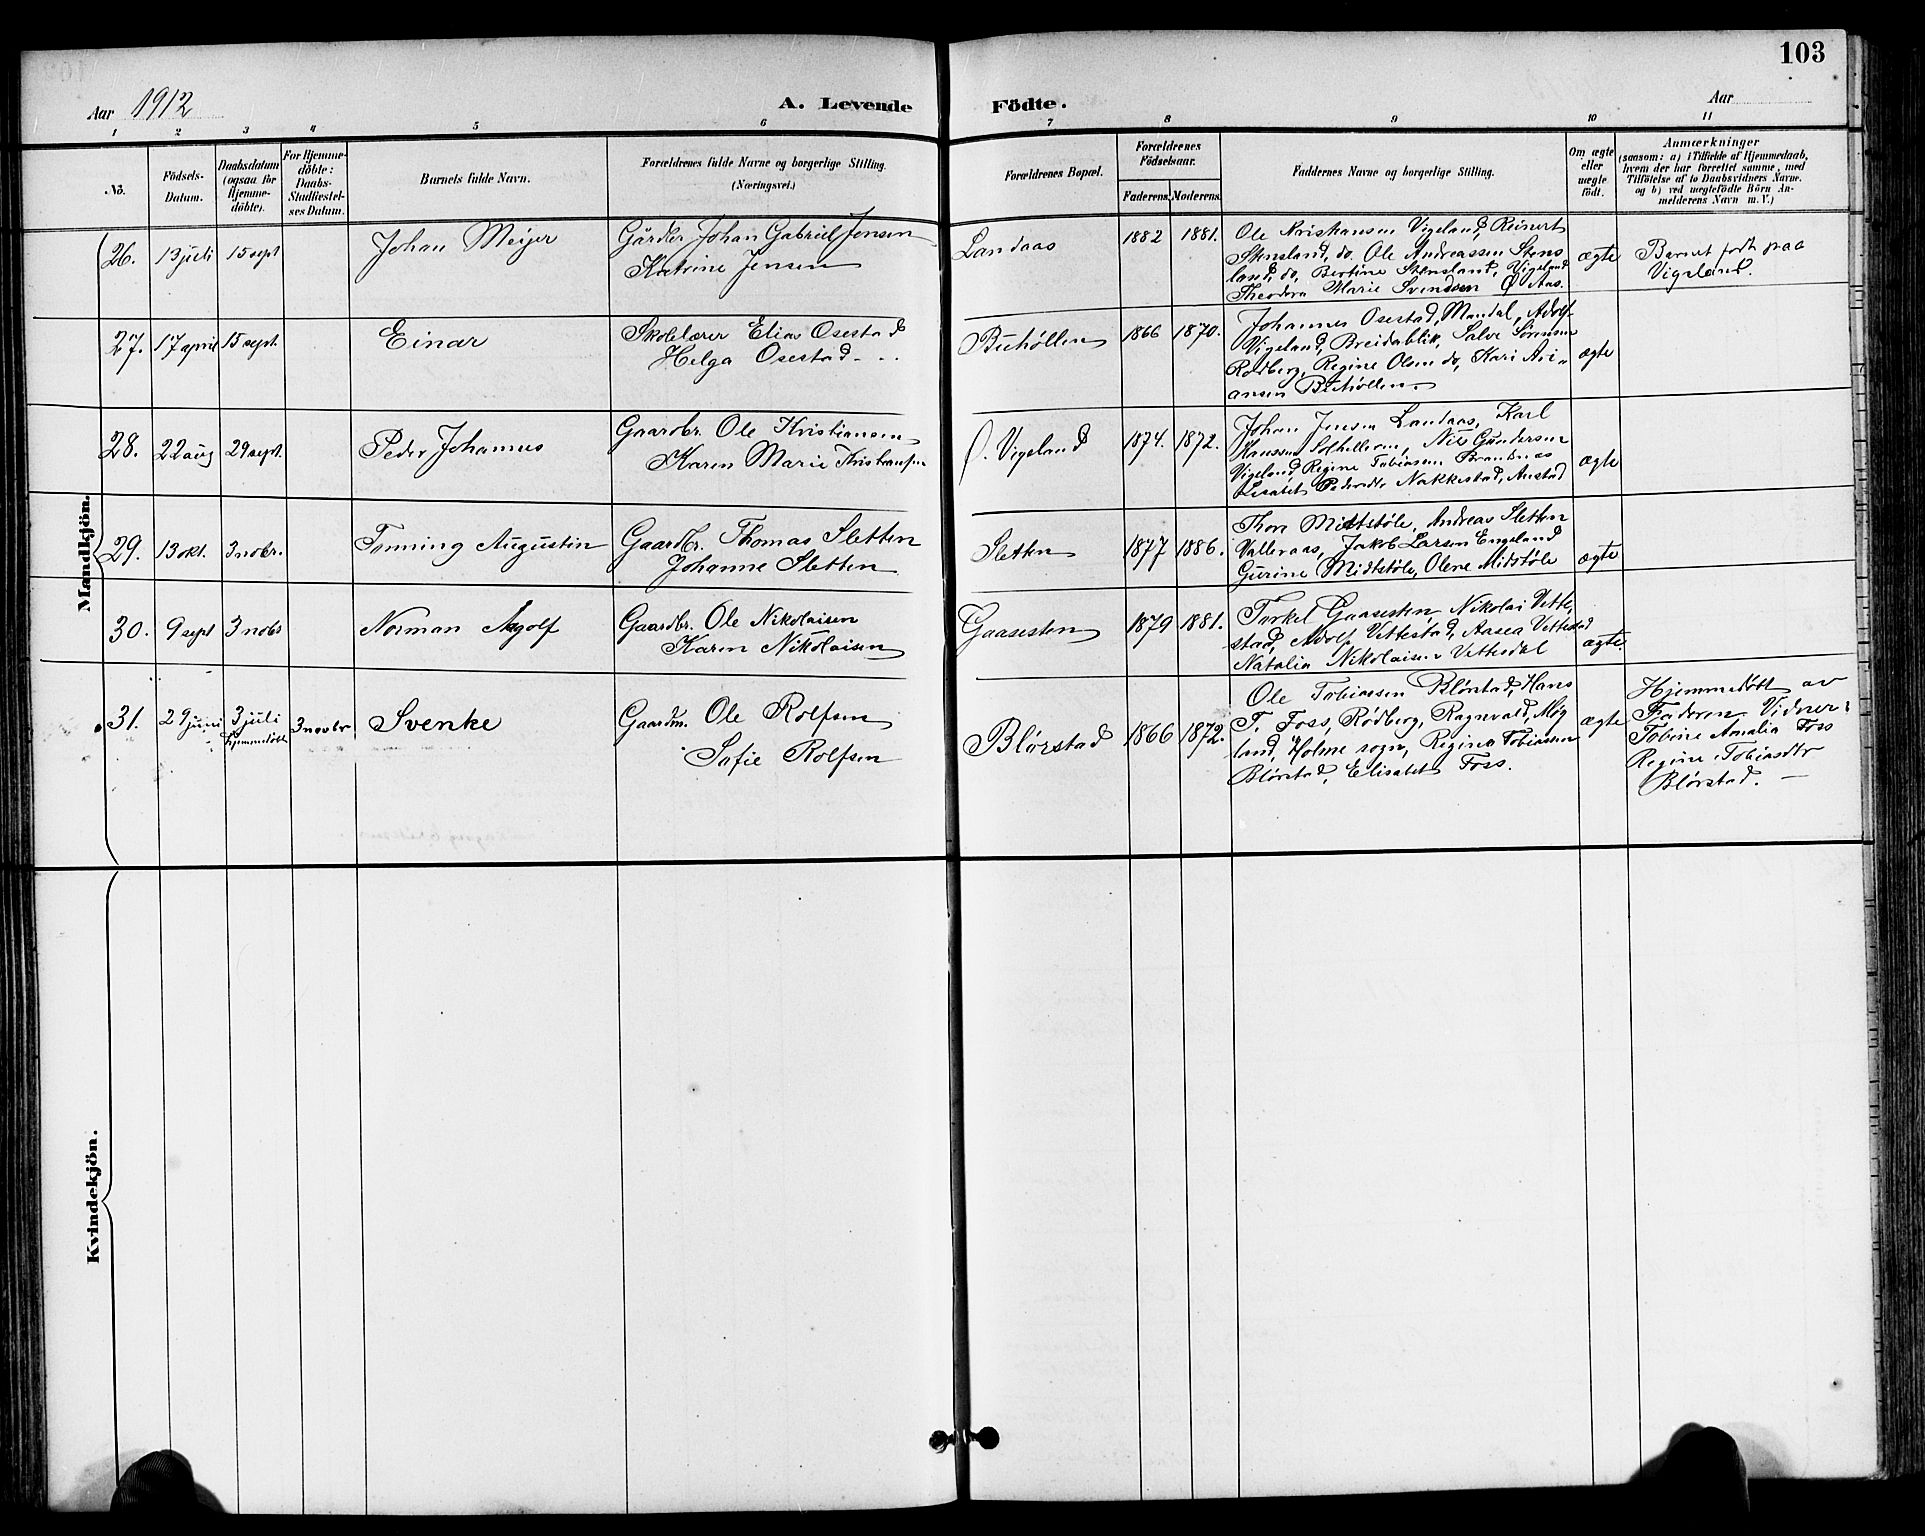 103
Aar 1912
A. Levende Födte.
Aar
1 2 3 4 5 6 7 8 9 10 11
No.
Födsels-
Datum.
Daabsdatum
(ogsaa for
Hjemme-
döbte).
For Hjemme-
döbte:
Daabs-
Stadfæstel-
ses Datum.
Barnets fulde Navn.
Forældrenes fulde Navne og borgerlige Stilling.
(Næringsvei.)
Forældrenes Bopæl.
Forældrenes
Födselsaar.
Faderens. Moderens.
Faddernes Navne og borgerlige Stilling.
Om ægte
eller
uægte
födt.
Anmærkninger
(saasom: a) i Tilfælde af Hjemmedaab,
hvem der har forrettet samme, med
Tilföielse af to Daabsvidners Navne.
og b) ved uægtefödte Börn An-
melderens Navn m. V.)
Mandkjön.
26. 13 juli 15 sept Johan Meijer
Gårdbr Johan Gabriel Jensen
Katrine Jensen
Landaas 1882 1881.
Ole Kristiansen Vigeland, Reinert
Stensland, do. Ole Andreassen Stens
land, do, Bertine Stensland, Vigeland
Theodora Marie Svendsen Ø Aas.
ægte
Barnet født paa
Vigeland.
27. 17 april 15 sept. Einar
Skolelærer Elias Osestad
Helga Osestad
Buhøllen 1866 1870.
Johannes Osestad, Mandal, Adolf
Vigeland, Breidablik, Salve Sørensen
Rødberg, Regine Olsen do, Kari Ari-
ansen Buhøllen.
ægte
28. 22 aug 29 sept. Peder Johannes
Gaardbr. Ole Kristiansen
Karen Marie Kristiansen
Ø. Vigeland 1874. 1872.
Johan Jensen Landaas, Karl
Hanssen Nils Gundersen
Vigeland, Regine Tobiasen
Lisabet Nakkestad,
ægte
29. 13 okt. 3 nobr. Tønning Augustin
Gaardbr. Thomas Sletten
Johanne Sletten
Sletten 1877 1886.
Thore Midtstøle, Andreas Sletten
Valleraas, Jakob Larsen Engeland
Gurine Midtstøle, Olene Midstøle
ægte
30. 9 sept 3 nobr Norman
Gaardbr. Ole Nikolaisen
Karen Nikolaisen
Gaasesten 1879 1881.
Torkel Gaasesten, Nikolai Vette-
stad, Adolf Vettestad, Aasea Vettestad
Natalia Nikolaisen Vettesdal
ægte
31. 29 juni 3 juli
hjemmedøbt 3 novbr Svenke
Gaardm. Ole Rolfsen
Sofie Rolfsen
Blørstad 1866 1872.
Ole Tobiassen Blørstad, Hans
T. Foss, Rødberg, Ragnvald, Møg
land, Holme sogn, Regine Tobiassen
Blørstad, Elisabet Foss.
ægte
Hjemmedøbt av
Faderen Vidner:
Tobine Amalia Foss
Regine Tobiasdtr
Blørstad.
Kvindekjön.